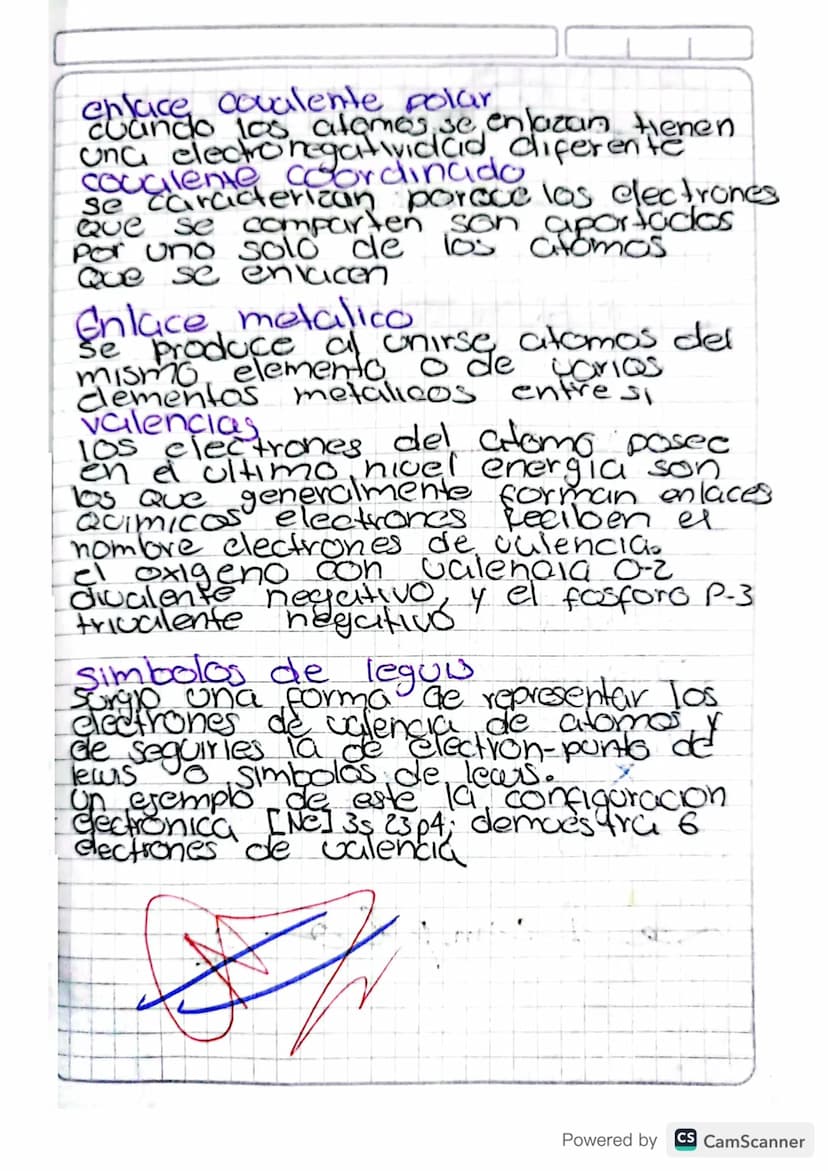 enlace covalente polar
cuando los atomos se enlazan tienen
una electronegatividad diferente
covalente coordinado
se caracterizan porque los electrones
que se comparten son aportados
por uno solo de los atomos
que se enlacen
Enlace metalico
se produce al unirse atomos del
mismo elemento o de varios
elementos metalicos entre si
valencias
los electrones del atomo posee
en el ultimo nivel energia son
los que generalmente forman enlaces
quimicos electrones reciben el
nombre electrones de valencia.
el oxigeno con valencia O-2
divalente negativo, y el fosforo P-3
trivalente negativo
simbolos de leguis
surgio una forma de representar los
electrones de valencia de atomos y
de seguirles la de electron-punto de
lewis o simbolos de lewis.
Un ejemplo de este la configuracion
electronica [Ne] 3s 23p4; demuestra 6
electrones de valencia
Powered by CS CamScanner